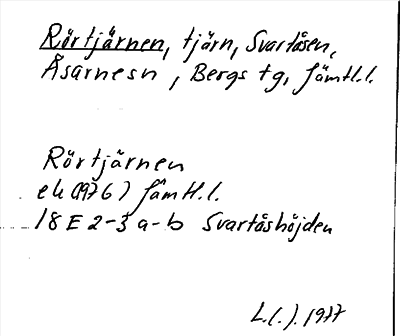 Rörtjärnen, tjärn, Svartåsen,
Åsarnesn, Bergs tg, Jämtl.l.
Rörtjärnen
ek (1976) Jämtl.l.
18E 2-3 a-b Svartåshöjden
1977